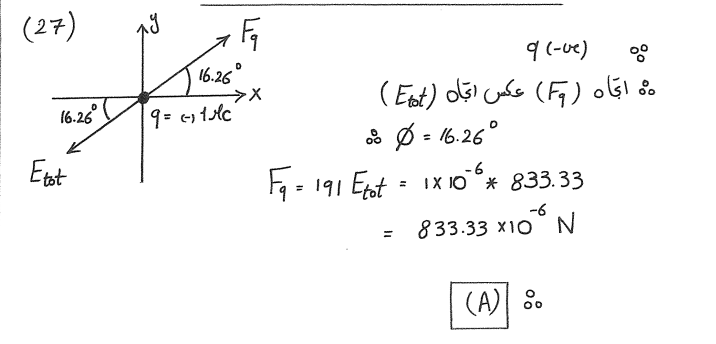 (27)
y
F_q
16.26°
x
16.26°
q = (-) 1 μc
E_tot
∵ q (-ve)
∴ اتجاه (F_q) عكس اتجاه (E_tot)
∴ Ø = 16.26°
F_q = |q| E_tot = 1 x 10^-6 * 833.33
= 833.33 x10^-6 N
∴ (A)